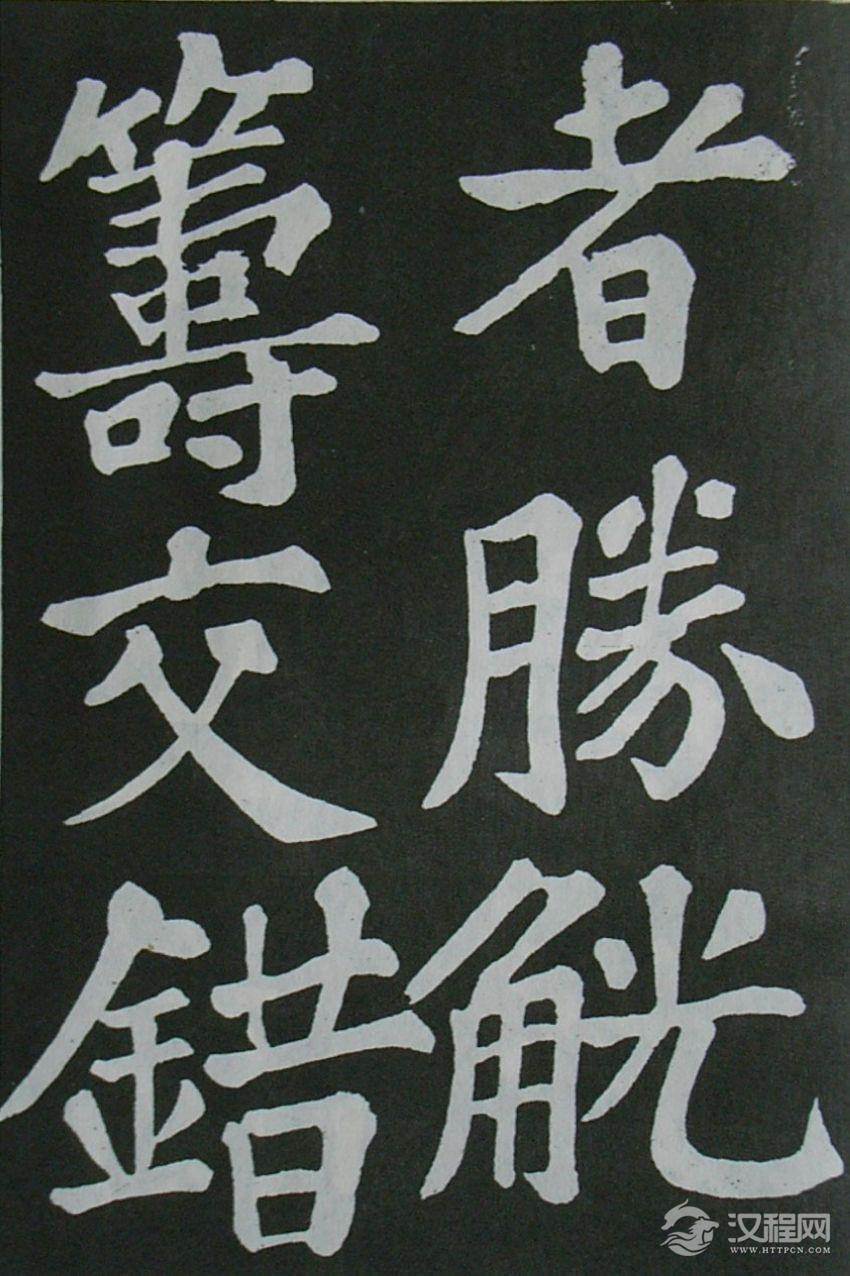 者勝觥
籌交錯
汉程网
WWW.HTTPCN.COM